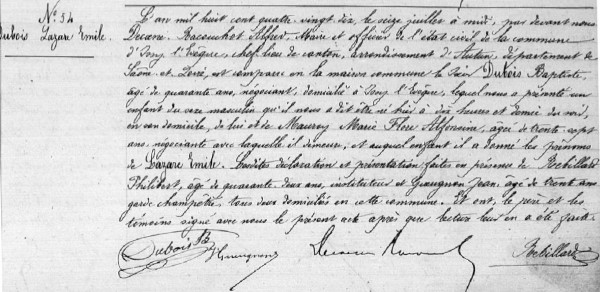 N° 34
Dubois
Lazare Emile.
L'an mil huit cent quatre vingt dix, le seize juillet à midi, par devant nous
Decœne Racouchot Alfred, Maire et officier de l'état civil de la commune
d'Issy l'Evêque, chef lieu de canton, arrondissement d'Autun, département de
Saône et Loire, est comparu en la maison commune le Sieur Dubois Baptiste,
âgé de quarante ans, négociant, domicilié à Issy l'Evêque, lequel nous a présenté un
enfant du sexe masculin qu'il nous a dit être né hier à dix heures et demie du soir,
en son domicile, de lui et de Mauroy Marie Flore Alfonsine, âgée de trente sept
ans, négociante avec laquelle il demeure, et auquel enfant il a donné les prénoms
de Lazare Emile. Lesdites déclaration et présentation faites en présence de Rebillard
Philibert, âgé de quarante deux ans, instituteur et Gueugnon Jean, âgé de trente ans
garde champêtre, tous deux domiciliés en cette commune. Et ont, le père et les
témoins signé avec nous le présent acte après que lecture leur en a été faite.
Dubois B
Gueugnon
Rebillard